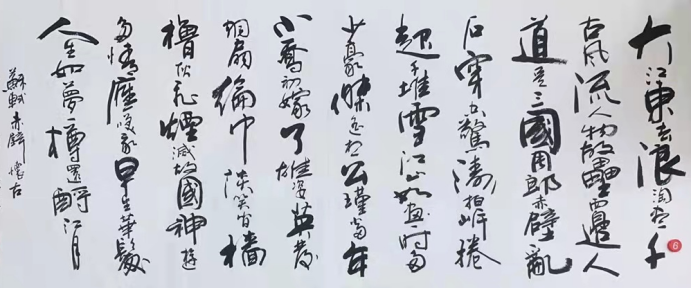 大江東去浪淘盡千
古風流人物故壘西邊人
道是三國周郎赤壁亂
石穿空驚濤拍岸捲
起千堆雪江山如畫一時多
少豪傑遙想公瑾當年
小喬初嫁了雄姿英發
羽扇綸巾談笑間檣
櫓灰飛煙滅故國神遊
多情應笑我早生華髮
人生如夢一樽還酹江月
蘇軾赤壁懷古
6